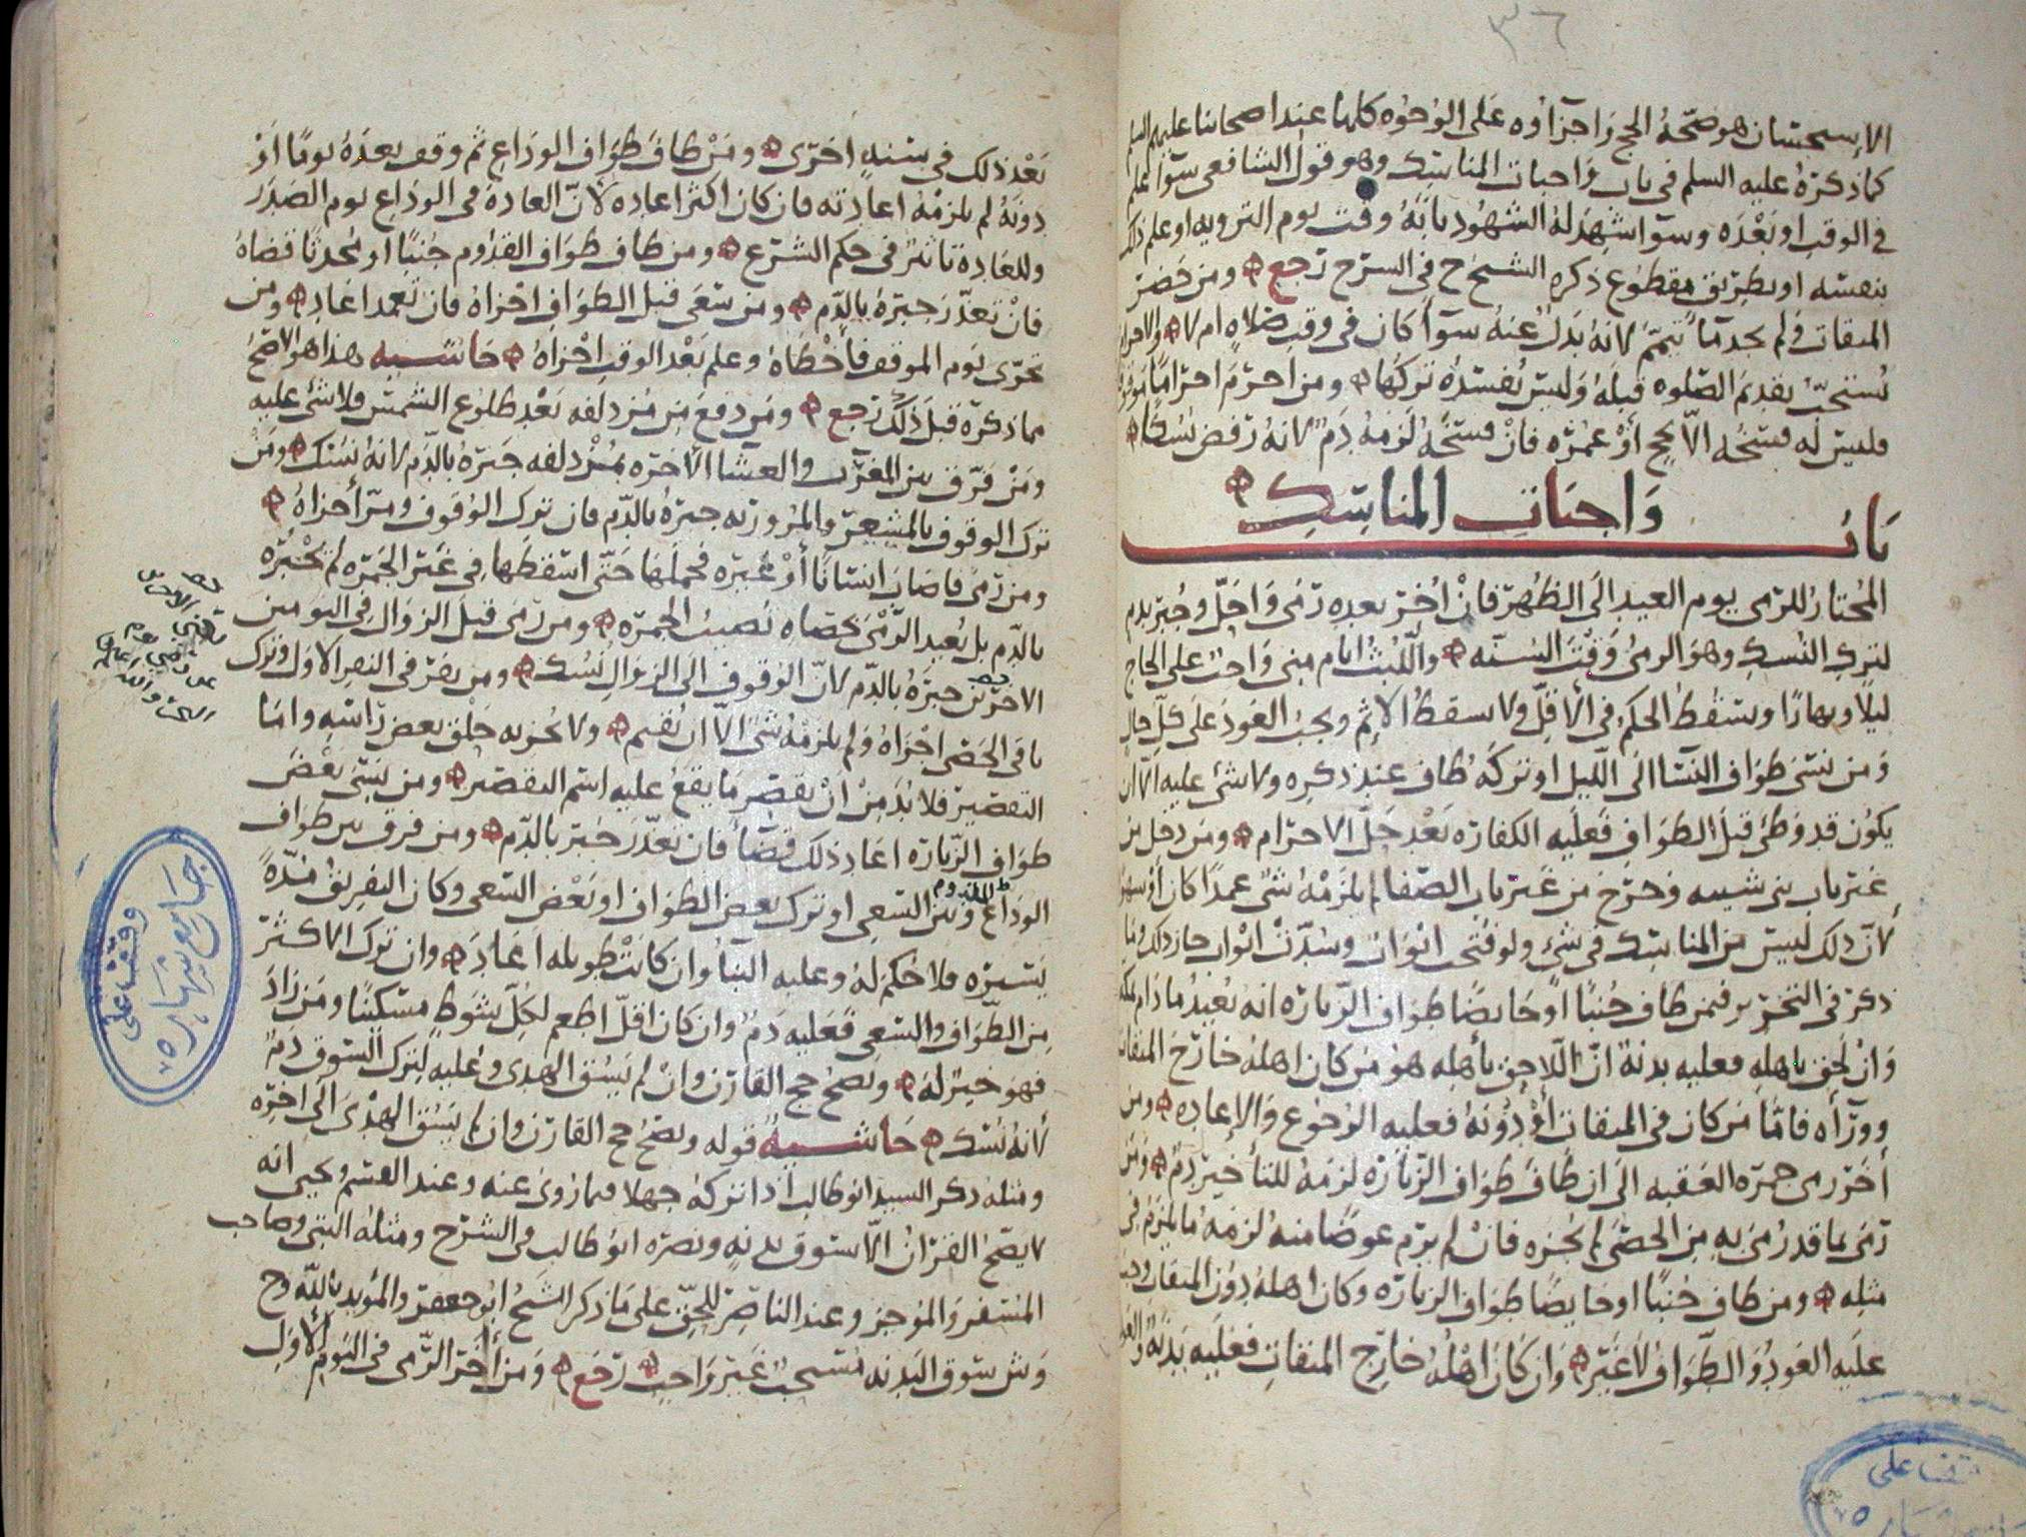 ٣٦
الإستحسان هو صحّة الحج واجزآؤه على الوجوه كلها عند اصحابنا عليهم السلم
كما ذكره عليه السلم في باب واجبات المناسك وهو قول الشافعي سوآ علم
في الوقت او بعده وسوآ شهد له الشهود بانه وقت يوم الترويه او علم ذلك
بنفسه او بطريق مقطوع ذكره الشيخ ح في الشرح رجع ومن حضر
الميقات ولم يجد مآ تيمّم لانه بدل عنه سوآ كان في وقت صلاه ام لا والاحرام
يستحبّ تقديم الصلوه قبله وليس يفسده تركها ومن احرم احراما موقوفا
فليس له فسخه الّا بحج أو عمره فان فسخه لزمه دم لانه رفض نسكا
باب واجبات المناسك
المختار للرمي يوم العيد الى الظهر فان أخر بعده رمى واحلّ وجبر بدم
لترك النسك وهو الرمي وقت السنه واللبث ايام منى واجب على الحاج
ليلا ونهارا ويسقط الحكم في الأقلّ ولا يسقط الإثم ويجب العود على كلّ حال
ومن نسى طواف النسا الى الليل او تركه طاف عند ذكره ولا شي عليه الّا ان
يكون قد وطئ قبل الطواف فعليه الكفاره بعد حلّ الاحرام ومن دخل من
غير باب بني شيبه وخرج من غير باب الصفا لم يلزمه شي عمدا كان أو سهوا
لأنّ ذلك ليس من المناسك في شي ولو فتحت ابواب وسدّت ابواب جاز ذلك وما
ذكر في التحرير فيمن طاف جنبا او حايضا طواف الزياره انه يعيد ما دام بمكه
وان لحق باهله فعليه بدنة انّ اللاحق بأهله هو من كان اهله خارج الميقات
وورآه فامّا من كان في الميقات أو دونه فعليه الرجوع والإعاده ومن
أخر رمي جمره العقبه الى ان طاف طواف الزياره لزمه للتأخير دم ومن
رمى بما قد رمي به من الحصى لم يجزه فان لم يرم عوضا منه لزمه ما يلزم في
مثله ومن طاف جنبا او حايضا طواف الزياره وكان اهله دون الميقات وجب
عليه العود والطواف لا غير وان كان اهله خارج الميقات فعليه بدنة والعود
بعد ذلك في سنه أخرى ومن طاف طواف الوداع ثم وقف بعده يوما او
دونه لم يلزمه اعادته فان كان اكثر اعاده لأنّ العاده في الوداع يوم الصدر
وللعاده تاثير في حكم الشرع ومن طاف طواف القدوم جنبا او محدثا قضاه
فان تعذّر جبره بالدم ومن سعى قبل الطواف اجزاه فان تعمد اعاد ومن
تحرّى يوم الموقف فأخطاه وعلم بعد الوقت اجزاه حاشيه هذا هو الاصح
مما ذكره قبل ذلك رجع ومن دفع من مزدلفه بعد طلوع الشمس فلا شي عليه
ومن فرّق بين المغرب والعشا الآخره بمزدلفه جبره بالدّم لانه نسك ومن
ترك الوقوف بالمشعر والمرور به جبره بالدّم فان ترك الوقوف ومرّ أجزاه
ومن رمى فاصاب انسانا أو غيره فحملها حتّى اسقطها في غير الجمره لم يجبره
بالدّم بل يعيد الرّمي بحصاه تصيب الجمره ومن رمى قبل الزوال في اليومين
الآخرين جبره بالدّم لانّ الوقوف الى الزوال نسك ومن نفر في النفر الاول وترك
باقي الحصى اجزاه ولم يلزمه شي الّا ان يقيم ولا يجزيه حلق بعض راسه واما
التقصير فلا بدّ من أن يقصر ما يقع عليه اسم التقصير ومن نسى بعض
طواف الزياره اعاد ذلك قضآ فان تعذّر جبر بالدّم ومن فرق بين طواف
الوداع وبين السعي او ترك بعض الطواف او بعض السعي وكان التفريق مدّة
يسيره فلا حكم له وعليه البنا وان كانت طويله اعاد وان ترك الاكثر
من الطواف والسعي فعليه دم وان كان اقلّ اطعم لكلّ شوط مسكينا ومن زاد
فهو خير له ويصحّ حج القارن وان لم يسق الهدى وعليه لترك السوق دم
لأنه نسك حاشيه قوله ويصحّ حج القارن وان لم يسق الهدى الى اخره
ومثله ذكر السيد ابو طالب اذا تركه جهلا فيما روى عنه وعند القسم ويحيى انه
لا يصحّ القران الّا بسوق بدنه ونصره ابو طالب في الشرح ومثله النبى وصاحب
المسفر والموجز وعند الناصر للحقّ على ما ذكر الشيخ ابو جعفر والمؤيد بالله وح
وش سوق البدنه مستحب غير واجب رجع ومن أخر الرّمي في اليوم الأول
وقف على
جامع شهاره
٧٥
وقف على